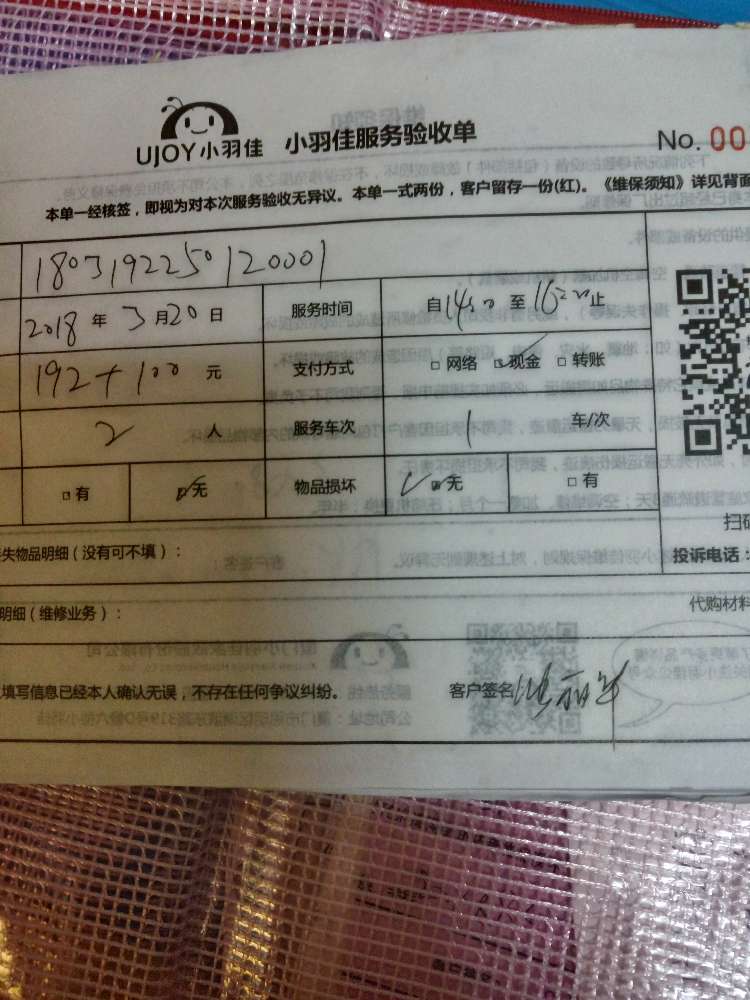 UJOY小羽佳 小羽佳服务验收单
No. 00
本单一经核签，即视为对本次服务验收无异议。本单一式两份，客户留存一份(红)。《维保须知》详见背面
1803192250120001
2018 年 3 月 20 日 服务时间 自 至 止
192+100 元 支付方式 □网络 ☑现金 □转账
2 人 服务车次 1 车/次
□有 ☑无 物品损坏 ☑无 □有
失物品明细（没有可不填）：
扫码
投诉电话：
明细（维修业务）：
代购材料
填写信息已经本人确认无误，不存在任何争议纠纷。 客户签名